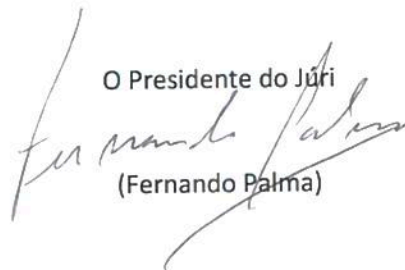 O Presidente do Júri
Fernando Palma
(Fernando Palma)